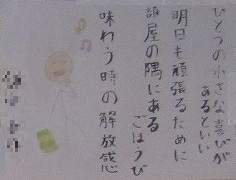 ひとつの小さな喜びが
あるといい
明日も頑張るために
部屋の隅にある
ごほうび
味わう時の解放感